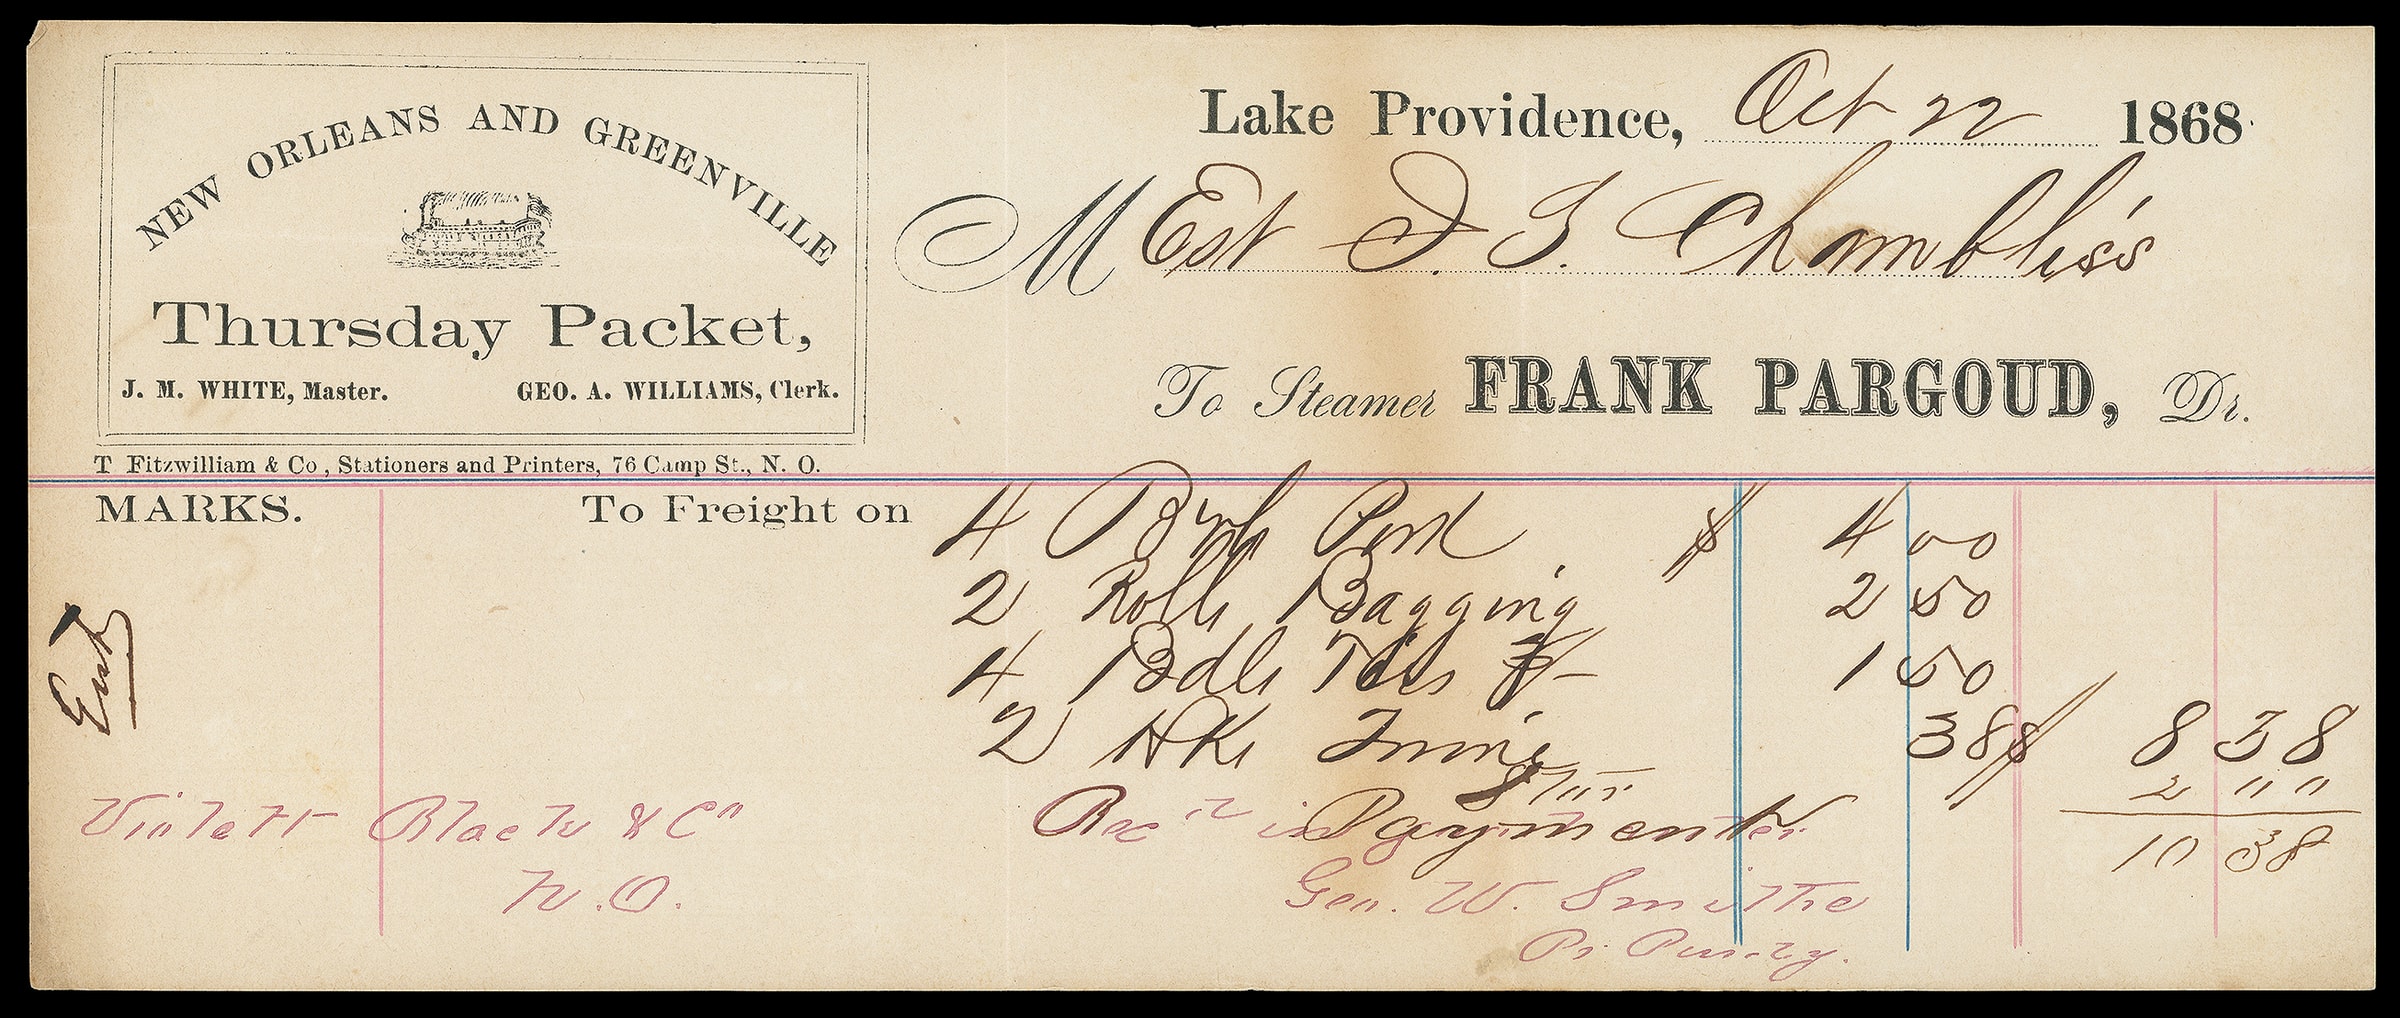 NEW ORLEANS AND GREENVILLE
Thursday Packet,
J. M. WHITE, Master. GEO. A. WILLIAMS, Clerk.
T Fitzwilliam & Co, Stationers and Printers, 76 Camp St., N. O.
Lake Providence, Oct 22 1868
M Est J. G. Chambliss
To Steamer FRANK PARGOUD, Dr.
MARKS. To Freight on 4 Brls Pork $ 4 00
2 Rolls Bagging 2 50
4 Bdls Ties 1 50
2 Twine 38 8 38
2 " "
Violett Black & Co Rec in Payment
10 38
N.O.
Geo. W. Smith